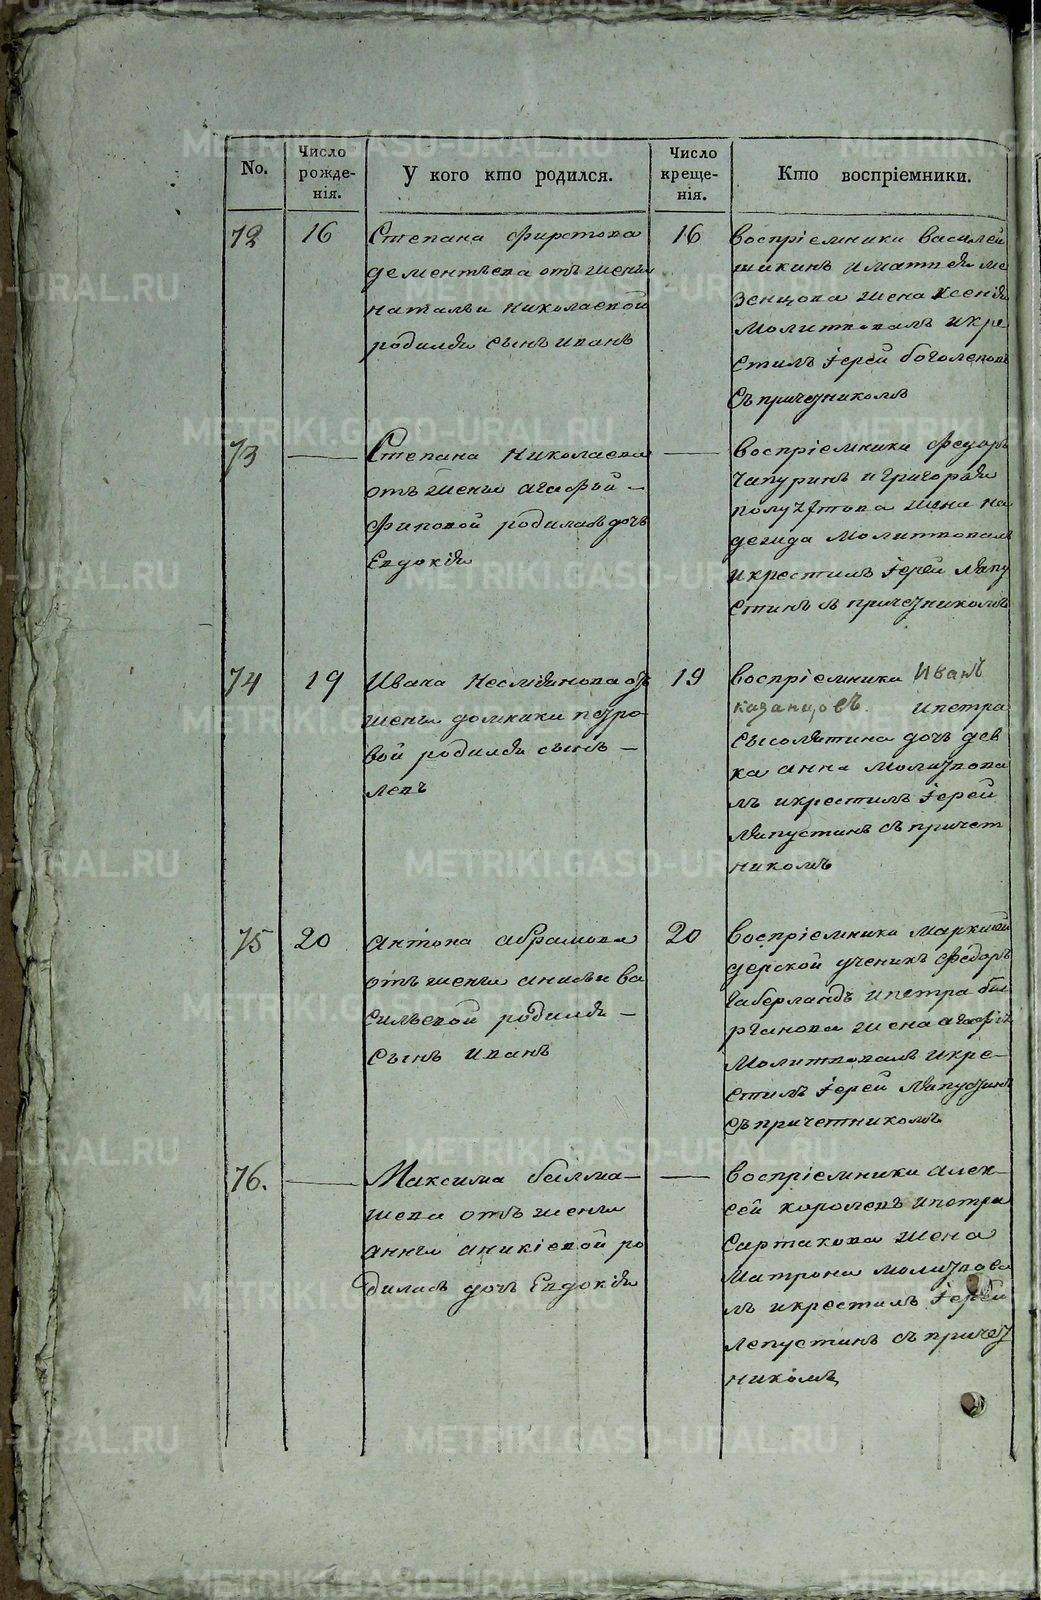 No.
Число рожде- нія.
У кого кто родился.
Число креще- нія.
Кто воспріемники.
72
16
Степана фирстова
дементьева отъ жены
натальи николаевой
родился сынъ иванъ
16
воспріемники василей
шикинъ и матвея ме
зенцова жена ксенія
молитвовалъ и кре
стилъ Іерей боголеповъ
съ причетникомъ
73
Степана Николаева
отъ жены агафьи
родиласъ дочь
Евдокія
воспріемники федоръ
чапуринъ и григорья
полуэктова жена на
дежда молитвовалъ
и крестилъ Іерей ляпу
стинъ съ причетникомъ
74
19
Ивана Неслиянова отъ
жены домники петро
вой родился сынъ —
левъ
19
воспріемники Иванъ
казанцовъ и петра
сысолятина дочь дев
ка анна молитвова
лъ и крестилъ Іерей
ляпустинъ съ причет
никомъ
75
20
антона абрамова
отъ жены анисьи ва
сильевой родился —
сынъ иванъ
20
воспріемники маркшей
дерской ученикъ федоръ
габерландъ и петра
жена агафія
молитвовалъ и кре-
стилъ Іерей ляпустинъ
съ причетникомъ
76.
Максима балма-
шева отъ жены
анны аникіевой ро
дилась дочь Евдокія
воспріемники алек-
сей королевъ и петра
Сартакова жена
матрона молитвова
лъ и крестилъ Іерей
лепустинъ съ причет
никомъ
METRIKI.GASO-URAL.RU